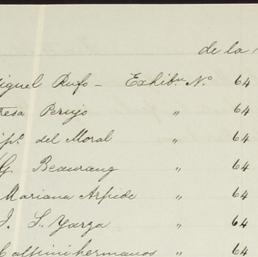 de la
Miguel Rufo - Exhibn. No 64
Teresa Perujo " 64
del Moral " 64
G. Beaurang " 64
Mariana Arpide " 64
J. S. Yarza " 64
Calpini hermanos " 64